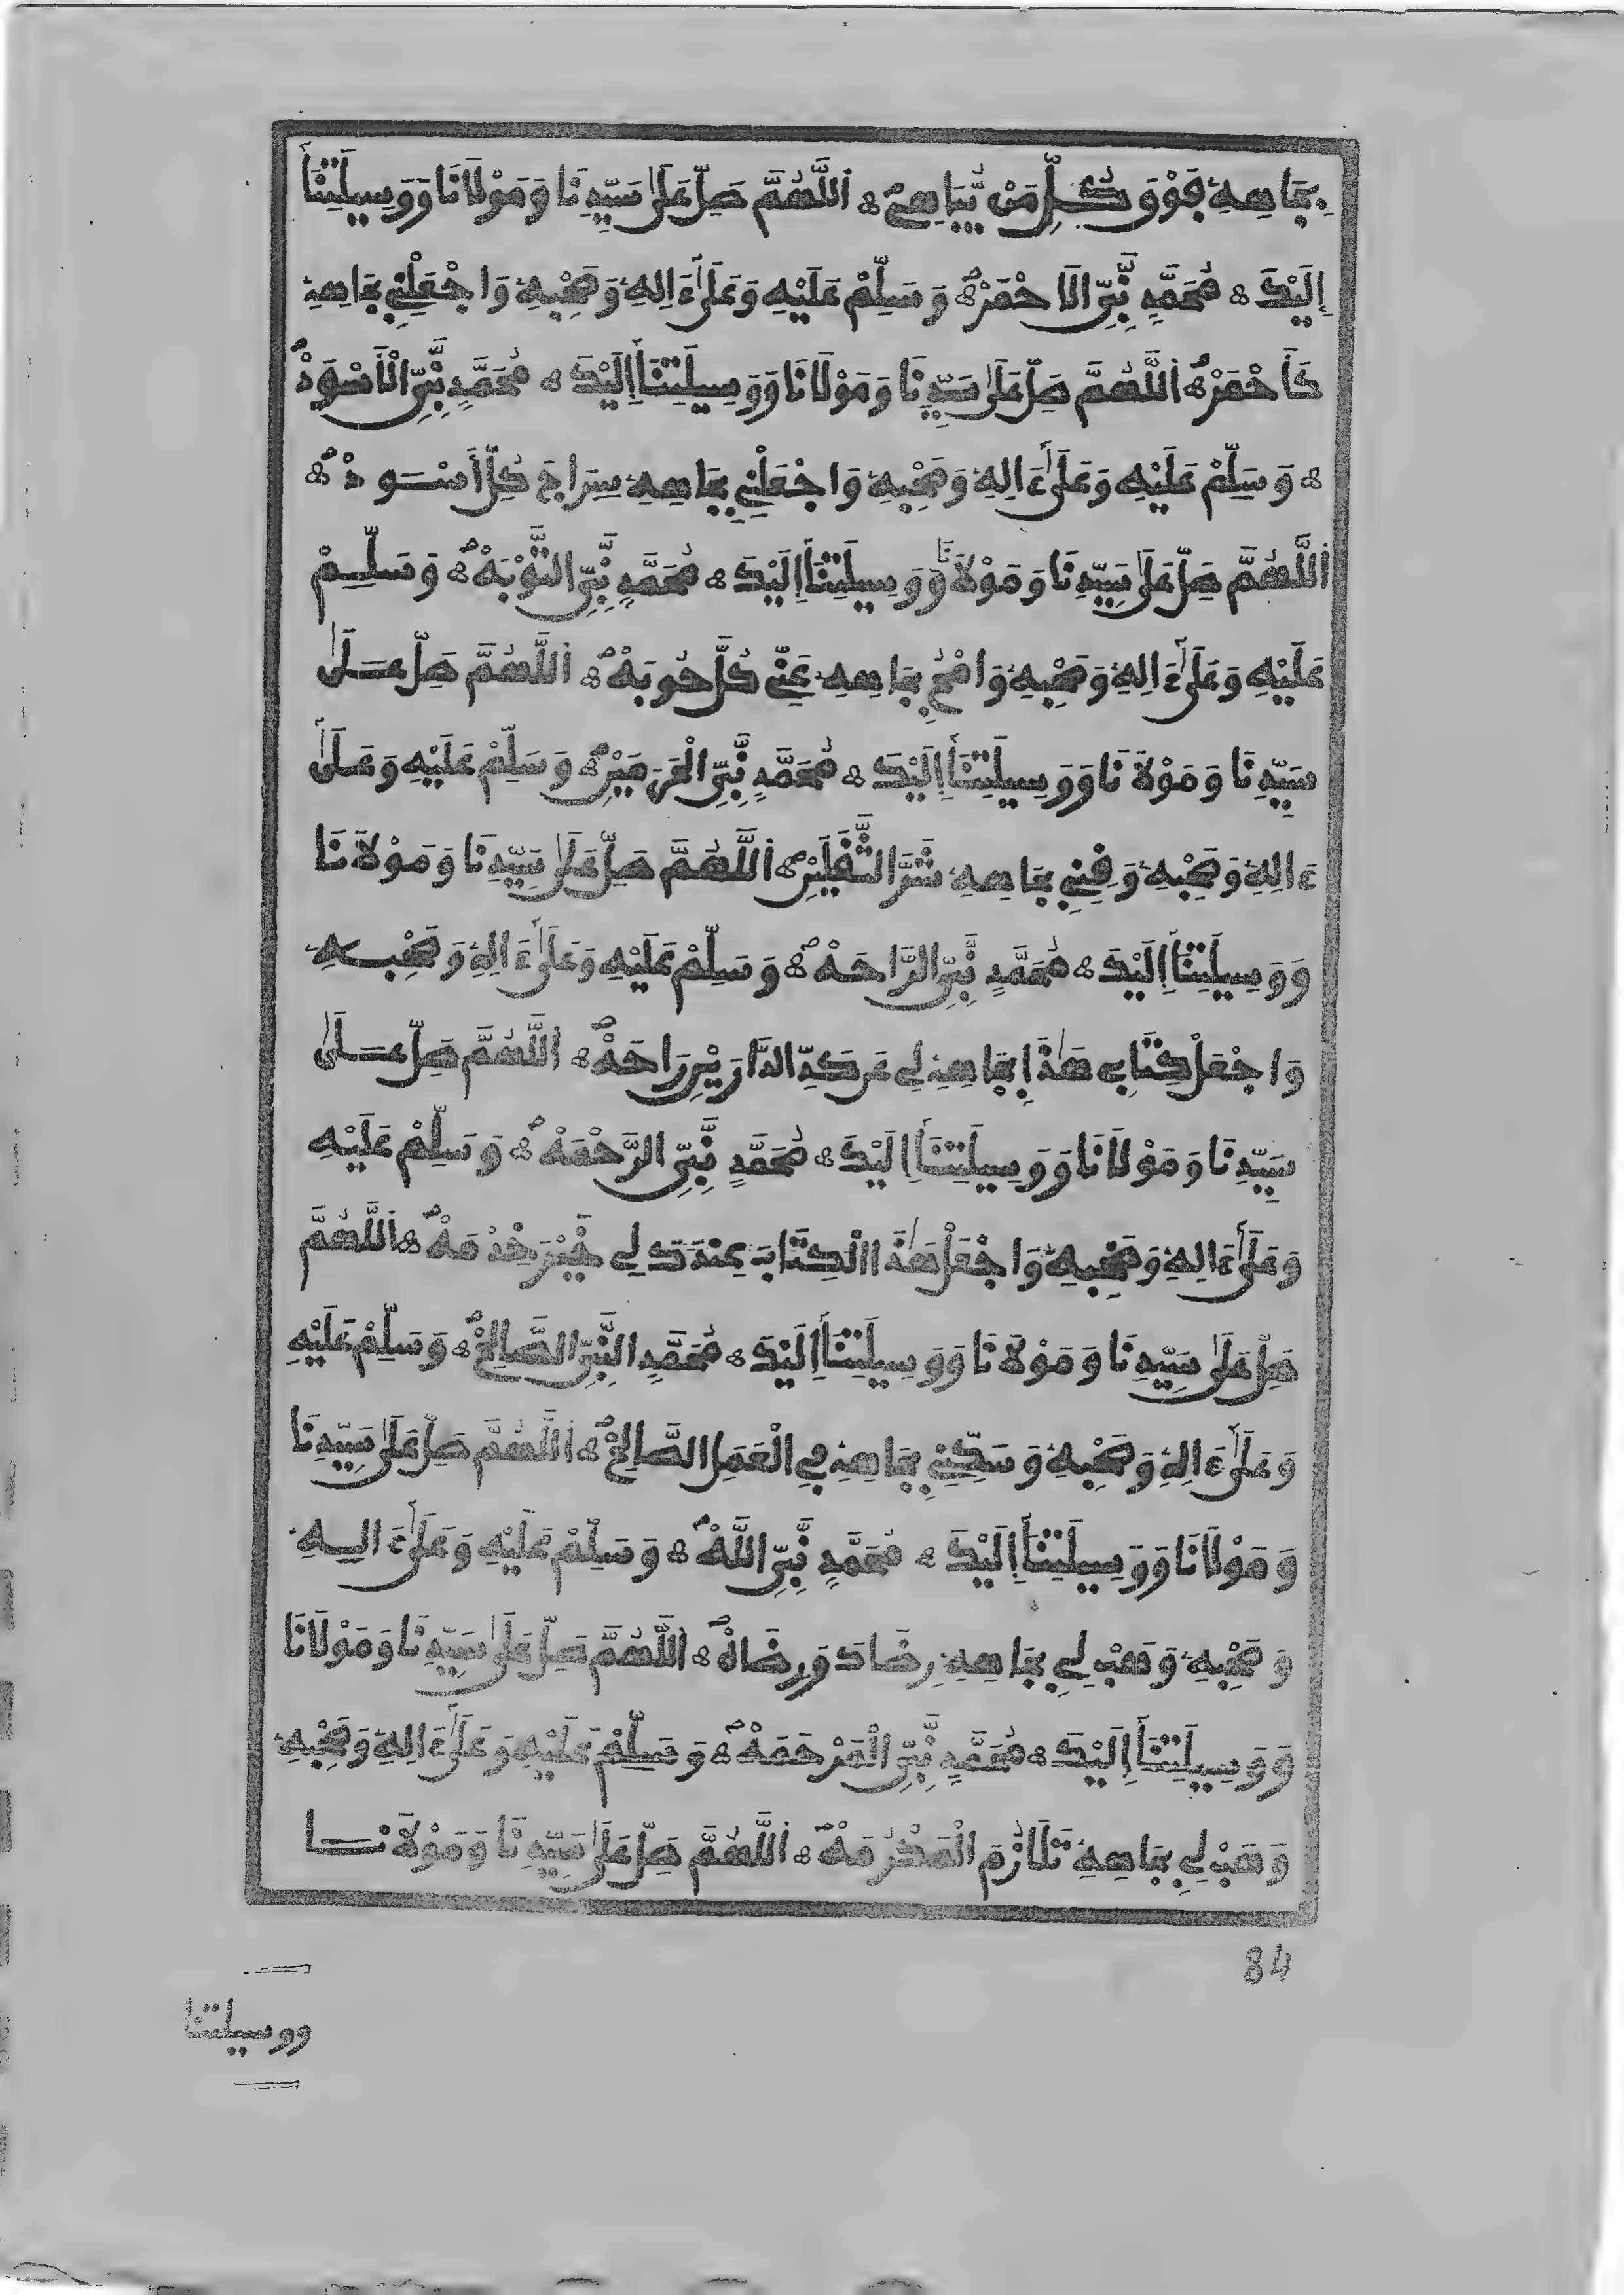 بِجَاهِهِ فَوْقَ كُلِّ مَنْ يُّبَاهِے اَللَّهُمَّ صَلِّ عَلَىٰ سَيِّدِنَا وَمَوْلَانَا وَوَسِيلَتِنَا
إِلَيْكَ مُحَمَّدٍ نَّبِيِّ الَاحْمَرْ وَسَلِّمْ عَلَيْهِ وَعَلَىٰ ءَالِهِ وَصَحْبِهِ وَاجْعَلْنِي بِجَاهِهِ
كَأَحْمَرْ اَللَّهُمَّ صَلِّ عَلَىٰ سَيِّدِنَا وَمَوْلَانَا وَوَسِيلَتِنَا إِلَيْكَ مُحَمَّدٍ نَّبِيِّ الْأَسْوَدْ
وَسَلِّمْ عَلَيْهِ وَعَلَىٰ ءَالِهِ وَصَحْبِهِ وَاجْعَلْنِي بِجَاهِهِ سِرَاجَ كُلِّ أَسْوَدْ
اَللَّهُمَّ صَلِّ عَلَىٰ سَيِّدِنَا وَمَوْلَانَا وَوَسِيلَتِنَا إِلَيْكَ مُحَمَّدٍ نَّبِيِّ التَّوْبَهْ وَسَلِّمْ
عَلَيْهِ وَعَلَىٰ ءَالِهِ وَصَحْبِهِ وَامْحُ بِجَاهِهِ عَنِّي كُلَّ حُوبَهْ اَللَّهُمَّ صَلِّ عَلَىٰ
سَيِّدِنَا وَمَوْلَانَا وَوَسِيلَتِنَا إِلَيْكَ مُحَمَّدٍ نَّبِيِّ الْحَرَمَيْنِ وَسَلِّمْ عَلَيْهِ وَعَلَىٰ
ءَالِهِ وَصَحْبِهِ وَقِنِي بِجَاهِهِ شَرَّ الثَّقَلَيْنِ اَللَّهُمَّ صَلِّ عَلَىٰ سَيِّدِنَا وَمَوْلَانَا
وَوَسِيلَتِنَا إِلَيْكَ مُحَمَّدٍ نَّبِيِّ الرَّاحَهْ وَسَلِّمْ عَلَيْهِ وَعَلَىٰ ءَالِهِ وَصَحْبِهِ
وَاجْعَلْ كِتَابِي هَٰذَا بِجَاهِهِ لِي عَن كَدِّ الدَّارَيْنِ رَاحَهْ اَللَّهُمَّ صَلِّ عَلَىٰ
سَيِّدِنَا وَمَوْلَانَا وَوَسِيلَتِنَا إِلَيْكَ مُحَمَّدٍ نَّبِيِّ الرَّحْمَهْ وَسَلِّمْ عَلَيْهِ
وَعَلَىٰ ءَالِهِ وَصَحْبِهِ وَاجْعَلْ هَٰذَا الْكِتَابَ عِندَكَ لِي خَيْرَ خِدْمَهْ اَللَّهُمَّ
صَلِّ عَلَىٰ سَيِّدِنَا وَمَوْلَانَا وَوَسِيلَتِنَا إِلَيْكَ مُحَمَّدٍ النَّبِيِّ الصَّالِحْ وَسَلِّمْ عَلَيْهِ
وَعَلَىٰ ءَالِهِ وَصَحْبِهِ وَسَكِّنِّي بِجَاهِهِ فِي الْعَمَلِ الصَّالِحْ اَللَّهُمَّ صَلِّ عَلَىٰ سَيِّدِنَا
وَمَوْلَانَا وَوَسِيلَتِنَا إِلَيْكَ مُحَمَّدٍ نَّبِيِّ اللَّهْ وَسَلِّمْ عَلَيْهِ وَعَلَىٰ ءَالِهِ
وَصَحْبِهِ وَهَبْ لِي بِجَاهِهِ رِضَاكَ وَرِضَاهْ اَللَّهُمَّ صَلِّ عَلَىٰ سَيِّدِنَا وَمَوْلَانَا
وَوَسِيلَتِنَا إِلَيْكَ مُحَمَّدٍ نَّبِيِّ الْمَرْحَمَهْ وَسَلِّمْ عَلَيْهِ وَعَلَىٰ ءَالِهِ وَصَحْبِهِ
وَهَبْ لِي بِجَاهِهِ تَلَازُمَ الْمَكْرُمَهْ اَللَّهُمَّ صَلِّ عَلَىٰ سَيِّدِنَا وَمَوْلَانَا
84
ووسيلتنا